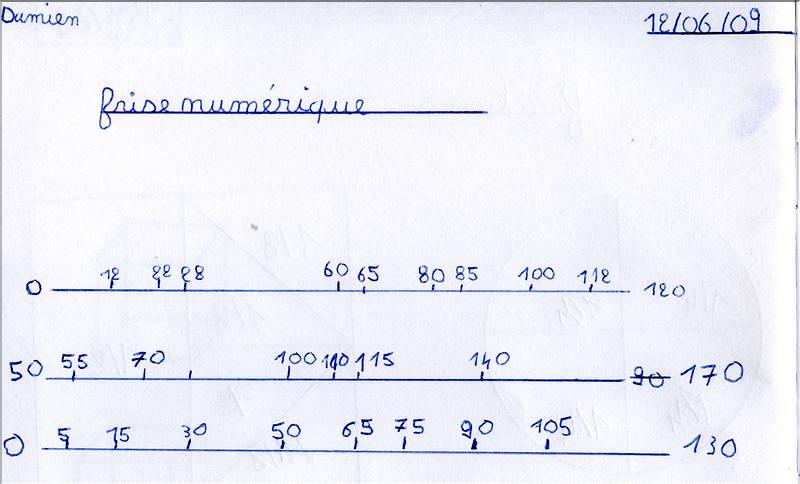 Damien
12/06/09
frise numérique
0 12 22 28 60 65 80 85 100 112 120
50 55 70 100 110 115 140 90 170
0 5 15 30 50 65 75 90 105 130